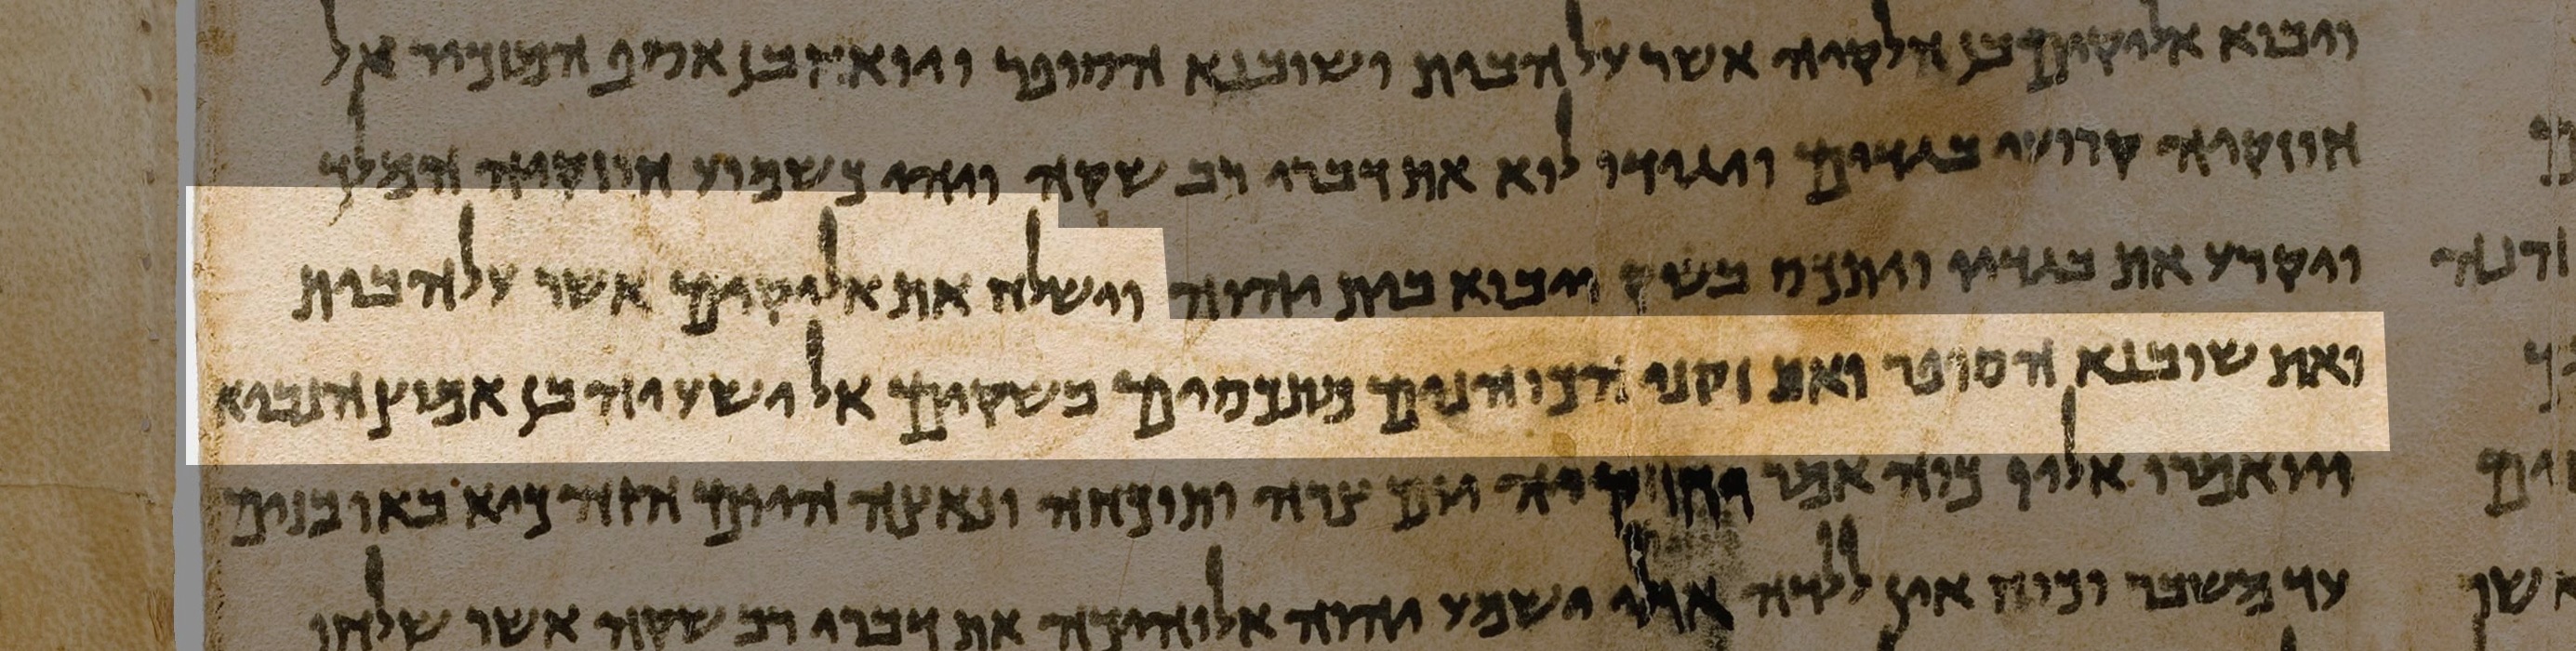 ויבוא אליקים בן חלקיה אשר על הבית ושובנא הסופר ויואח בן אסף המזכיר אל
חיזקיה קרועי בגדים ויגידו לוא את דברי רב שקה ויהי כשמוע חיזקיה המלך
ויקרע את בגדיו ויתכס בשק ויבוא בית יהוה וישלח את אליקים אשר על הבית
ואת שובנא הסופר ואת זקני הכוהנים מתכסים בשקים אל ישעיה בן אמוץ הנביא
ויואמרו אליו כוה אמר יום צרה ותוכחה ונאצה היום הזה כיא באו בנים
עד משבר וכוח אין ללדה אולי ישמע יהוה אלוהיכה את דברי רב שקה אשר שלחו